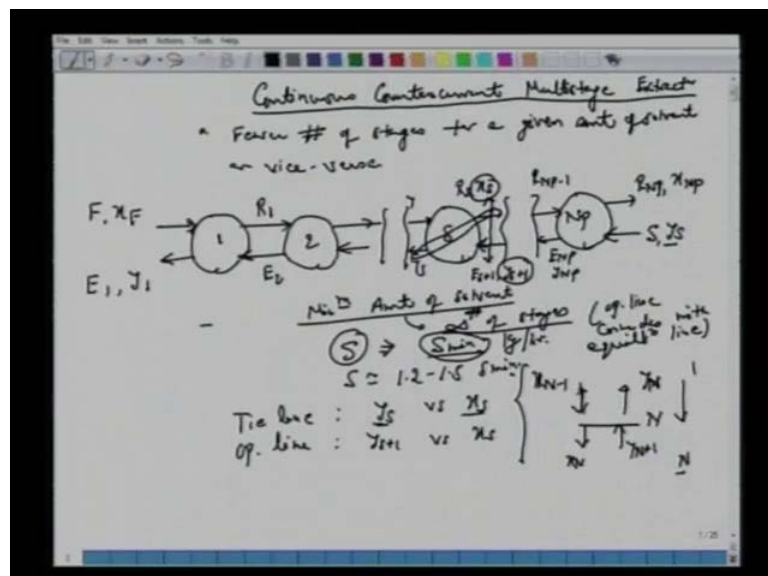 File Edit View Insert Actions Tools Help
Continuous Countercurrent Multistage Extract
Fewer # of stages for a given amt of solvent
or vice-versa
F, x_F R_1 R_s x_s R_{NP-1} R_{NP}, x_{NP}
1 2 S NP
E_1, y_1 E_2 E_s E_{s+1} y_{s+1} E_{NP} y_{NP} S, y_s
Min^m Amt of solvent
∞ # of stages (op. line
coincides with
equilib^m line)
S ⇒ S_min kg/hr.
S ≃ 1.2-1.5 S_min
Tie line : y_s vs x_s
op. line : y_{s+1} vs x_s
x_{N-1} y_N 1
N
x_N y_{N+1} N
1/25